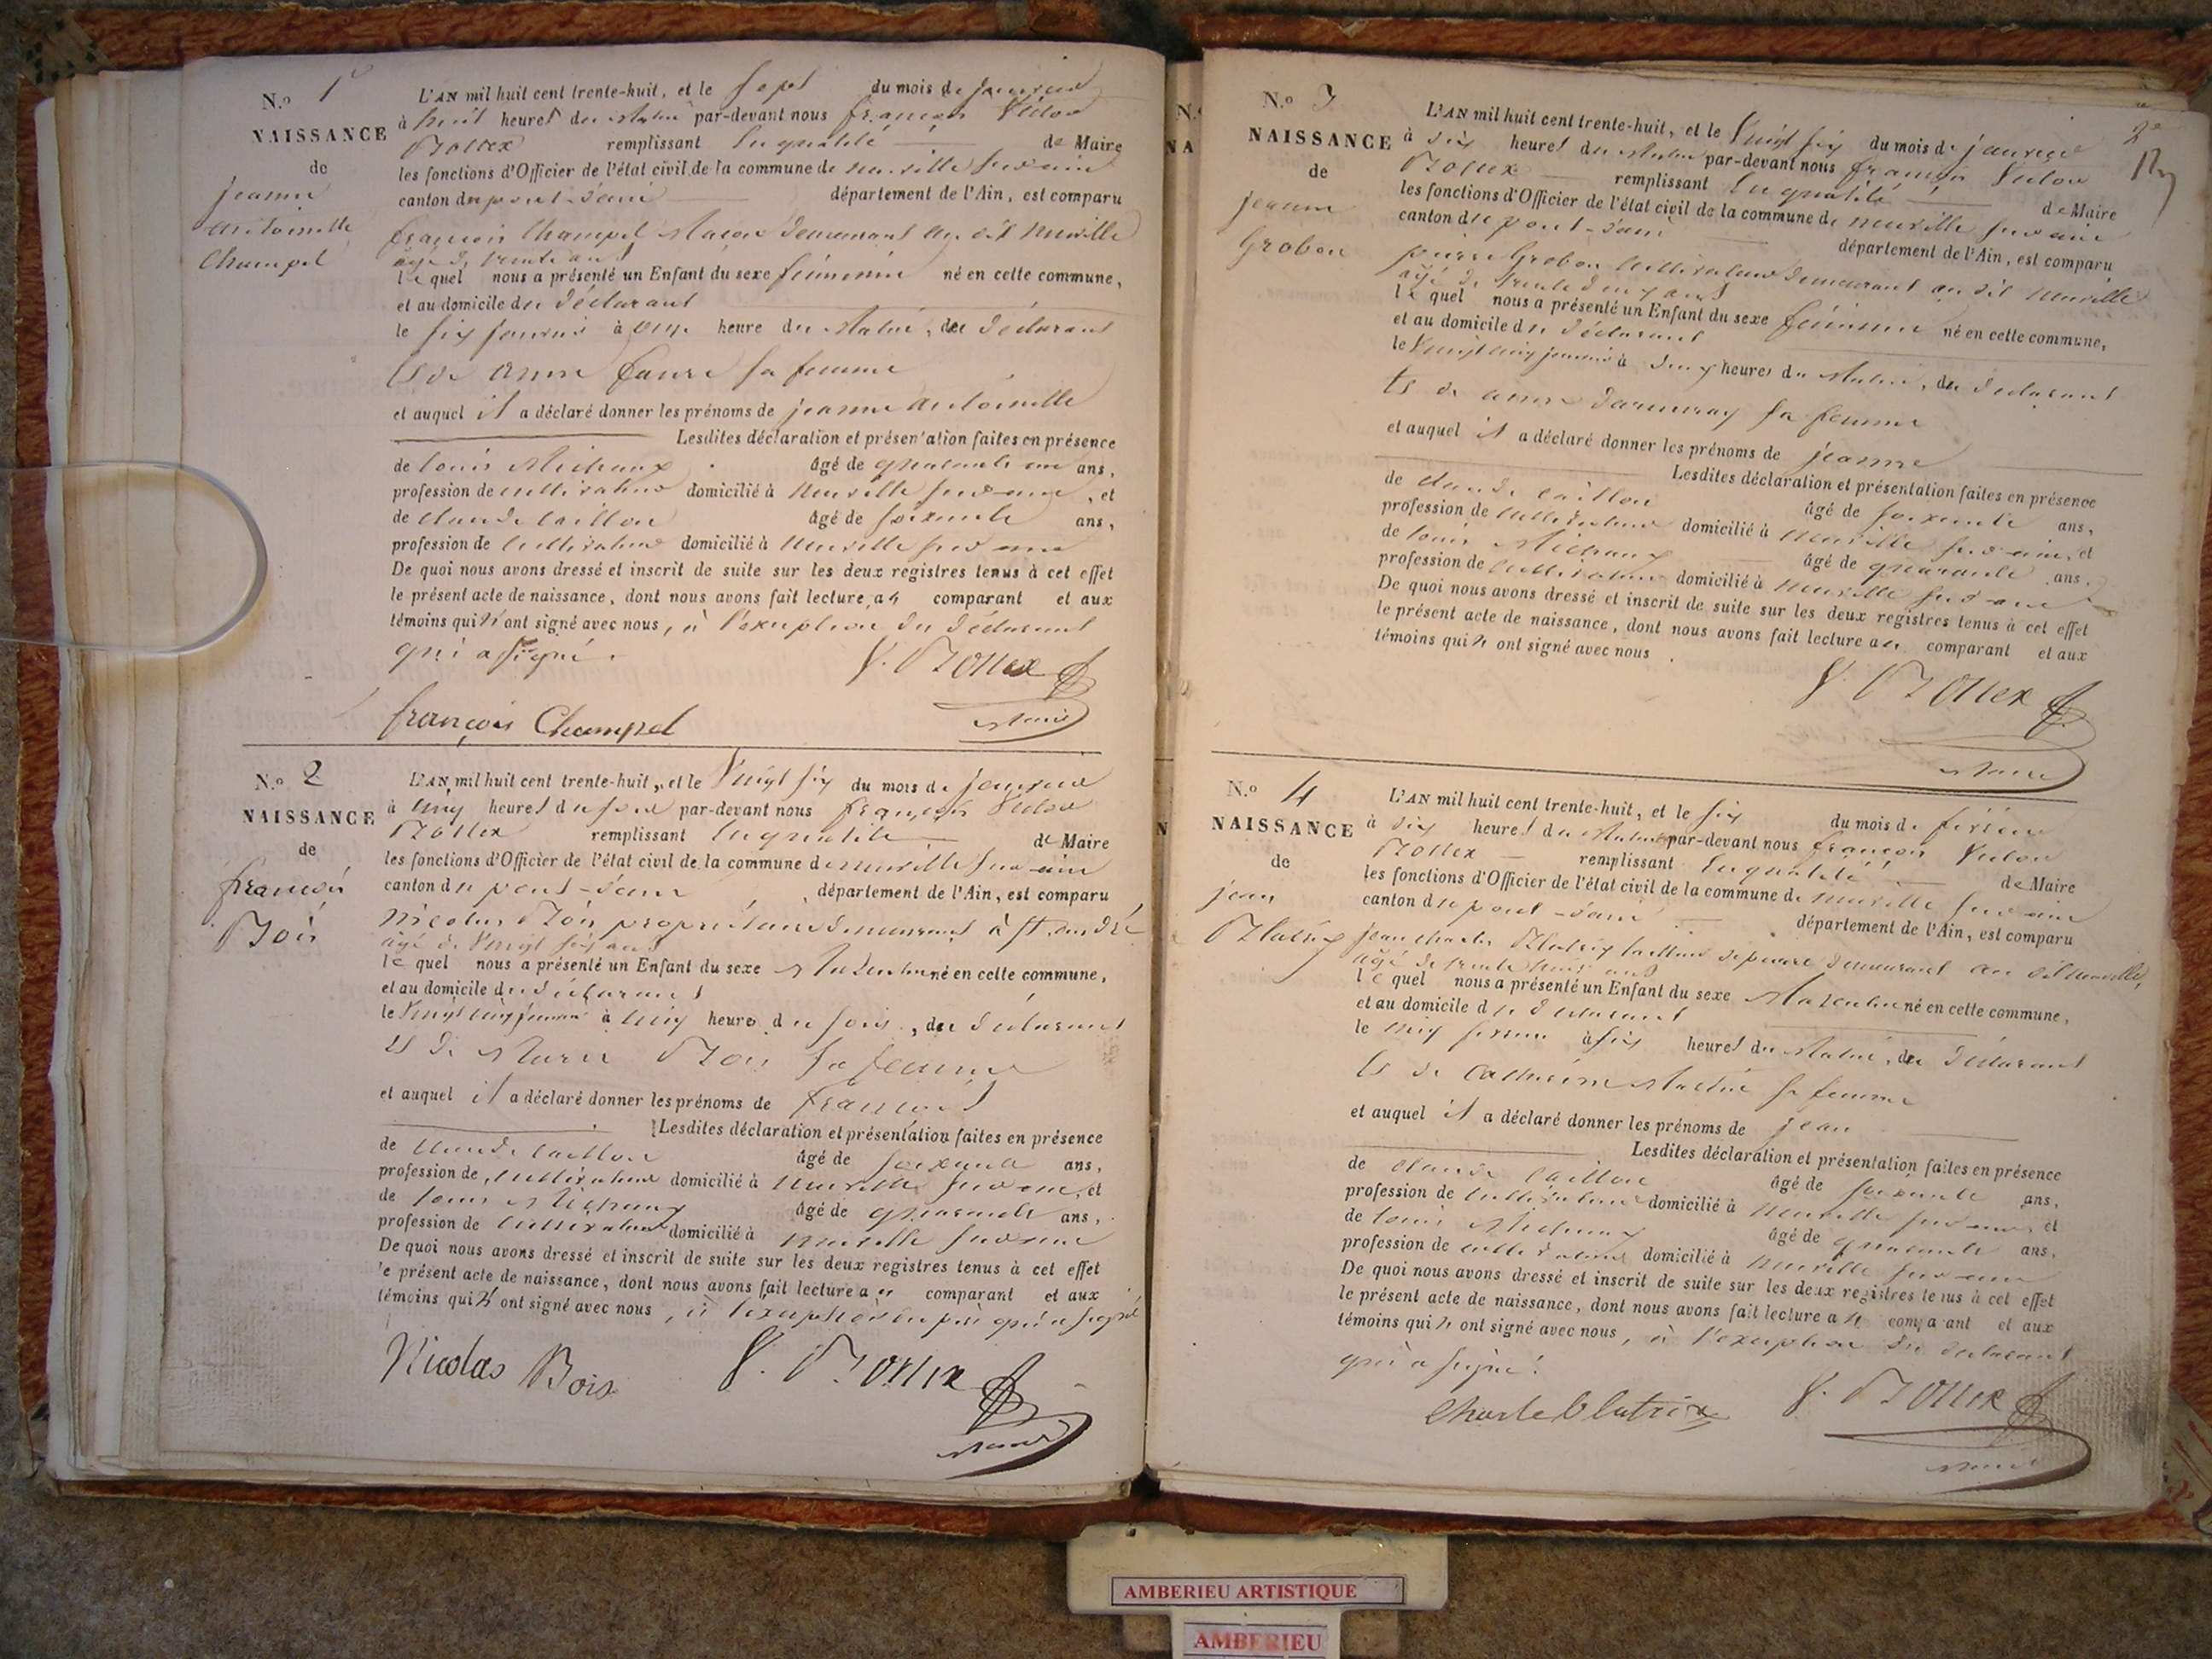 N.o 1
NAISSANCE
de
jeanne
antoinette
Champel
L'AN mil huit cent trente-huit, et le sept du mois de janvier
à huit heures du Matin par-devant nous françois Victor
remplissant en qualité de Maire
les fonctions d'Officier de l'état civil de la commune de neuville sur ain
canton du pont-d'ain département de l'Ain, est comparu
françois Champel Macon demeurant au dit neuville
agé de trente ans
le quel nous a présenté un Enfant du sexe féminin né en cette commune,
et au domicile du déclarant
le six janvier à onze heure du Matin, du déclarant
et de anne faure sa femme
et auquel il a déclaré donner les prénoms de jeanne antoinette
Lesdites déclaration et présentation faites en présence
de louis Michaux âgé de quarante un ans,
profession de cultivateur domicilié à Neuville sur ain, et
de claude caillon âgé de soixante ans,
profession de cultivateur domicilié à Neuville sur ain
De quoi nous avons dressé et inscrit de suite sur les deux registres tenus à cet effet
le présent acte de naissance, dont nous avons fait lecture au comparant et aux
témoins qui n'ont signé avec nous, à l'exception du déclarant
qui a signé.
françois Champel
maire
N.o 2
NAISSANCE
de
françois
Bois
L'AN mil huit cent trente-huit, et le Vingt six du mois de janvier
à cinq heures du soir par-devant nous françois Victor
remplissant en qualité de Maire
les fonctions d'Officier de l'état civil de la commune de neuville sur ain
canton du pont-d'ain département de l'Ain, est comparu
Nicolas Bois propriétaire demeurant à st. andré
agé de Vingt six ans
le quel nous a présenté un Enfant du sexe Masculin né en cette commune,
et au domicile du déclarant
le Vingt cinq janvier à cinq heures du soir, du déclarant
et de Marie Bois sa femme
et auquel il a déclaré donner les prénoms de françois
Lesdites déclaration et présentation faites en présence
de claude caillon âgé de soixante ans,
profession de cultivateur domicilié à Neuville sur ain, et
de louis Michaux âgé de quarante ans,
profession de cultivateur domicilié à Neuville sur ain
De quoi nous avons dressé et inscrit de suite sur les deux registres tenus à cet effet
le présent acte de naissance, dont nous avons fait lecture au comparant et aux
témoins qui n'ont signé avec nous, à l'exception du père qui a signé
Nicolas Bois
maire
N.o 3
NAISSANCE
de
jeanne
Grobon
2e
L'AN mil huit cent trente-huit, et le Vingt six du mois de janvier
à dix heures du Matin par-devant nous françois Victor
remplissant en qualité de Maire
les fonctions d'Officier de l'état civil de la commune de neuville sur ain
canton du pont-d'ain département de l'Ain, est comparu
pierre Grobon cultivateur demeurant au dit neuville
agé de trente deux ans
le quel nous a présenté un Enfant du sexe féminin né en cette commune,
et au domicile du déclarant
le Vingt cinq janvier à deux heures du Matin, du déclarant
et de anne sa femme
et auquel il a déclaré donner les prénoms de jeanne
Lesdites déclaration et présentation faites en présence
de claude caillon âgé de soixante ans,
profession de cultivateur domicilié à Neuville sur ain, et
de louis Michaux âgé de quarante ans,
profession de cultivateur domicilié à Neuville sur ain
De quoi nous avons dressé et inscrit de suite sur les deux registres tenus à cet effet
le présent acte de naissance, dont nous avons fait lecture au comparant et aux
témoins qui n'ont signé avec nous.
maire
N.o 4
NAISSANCE
de
jean
Blatrix
L'AN mil huit cent trente-huit, et le six du mois de février
à dix heures du Matin par-devant nous françois Victor
remplissant en qualité de Maire
les fonctions d'Officier de l'état civil de la commune de neuville sur ain
canton du pont-d'ain département de l'Ain, est comparu
jean charles Blatrix demeurant au dit neuville,
agé de trente ans
le quel nous a présenté un Enfant du sexe Masculin né en cette commune,
et au domicile du déclarant
le cinq février à six heures du Matin, du déclarant
et de Catherine sa femme
et auquel il a déclaré donner les prénoms de jean
Lesdites déclaration et présentation faites en présence
de claude caillon âgé de soixante ans,
profession de cultivateur domicilié à Neuville sur ain, et
de louis Michaux âgé de quarante ans,
profession de cultivateur domicilié à Neuville sur ain
De quoi nous avons dressé et inscrit de suite sur les deux registres tenus à cet effet
le présent acte de naissance, dont nous avons fait lecture au comparant et aux
témoins qui n'ont signé avec nous, à l'exception du déclarant
qui a signé.
Charle Blatrix
maire
AMBERIEU ARTISTIQUE
AMBERIEU